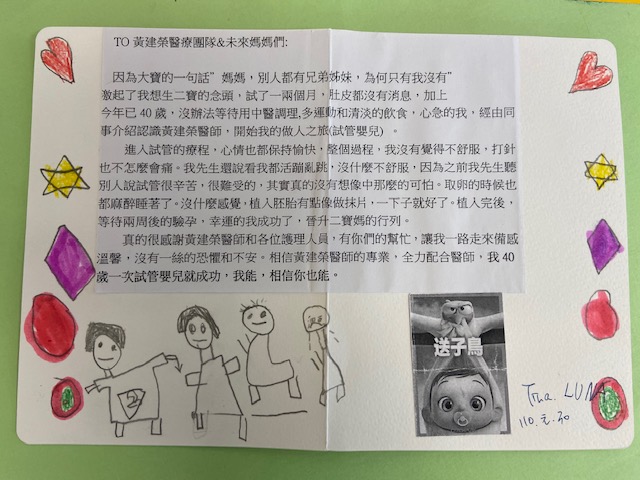 TO 黃建榮醫療團隊&未來媽媽們:
因為大寶的一句話”媽媽，別人都有兄弟姊妹，為何只有我沒有”
激起了我想生二寶的念頭，試了一兩個月，肚皮都沒有消息，加上
今年已 40 歲，沒辦法等待用中醫調理,多運動和清淡的飲食，心急的我，經由同
事介紹認識黃建榮醫師，開始我的做人之旅(試管嬰兒) 。
進入試管的療程，心情也都保持愉快，整個過程，我沒有覺得不舒服，打針
也不怎麼會痛。我先生還說看我都活蹦亂跳，沒什麼不舒服，因為之前我先生聽
別人說試管很辛苦，很難受的，其實真的沒有想像中那麼的可怕。取卵的時候也
都麻醉睡著了。沒什麼感覺，植入胚胎有點像做抹片，一下子就好了。植入完後，
等待兩周後的驗孕，幸運的我成功了，晉升二寶媽的行列。
真的很感謝黃建榮醫師和各位護理人員，有你們的幫忙，讓我一路走來備感
溫馨，沒有一絲的恐懼和不安。相信黃建榮醫師的專業，全力配合醫師，我 40
歲一次試管嬰兒就成功，我能，相信你也能。
2
送子鳥
LUNA